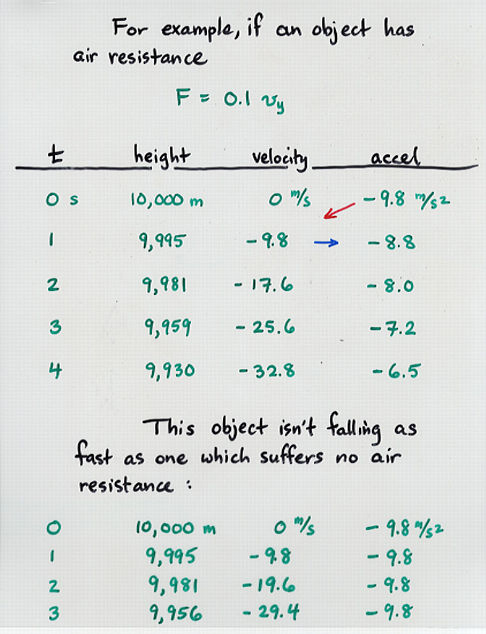 For example, if an object has
air resistance
F = 0.1 vy
t height velocity accel
0 s 10,000 m 0 m/s -9.8 m/s2
1 9,995 -9.8 → -8.8
2 9,981 -17.6 -8.0
3 9,959 -25.6 -7.2
4 9,930 -32.8 -6.5
This object isn't falling as
fast as one which suffers no air
resistance :
0 10,000 m 0 m/s -9.8 m/s2
1 9,995 -9.8 -9.8
2 9,981 -19.6 -9.8
3 9,956 -29.4 -9.8